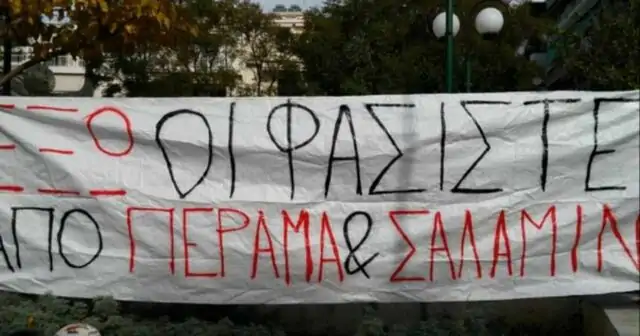 ΕΞΩ ΟΙ ΦΑΣΙΣΤΕ
ΑΠΟ ΠΕΡΑΜΑ & ΣΑΛΑΜΙΝ